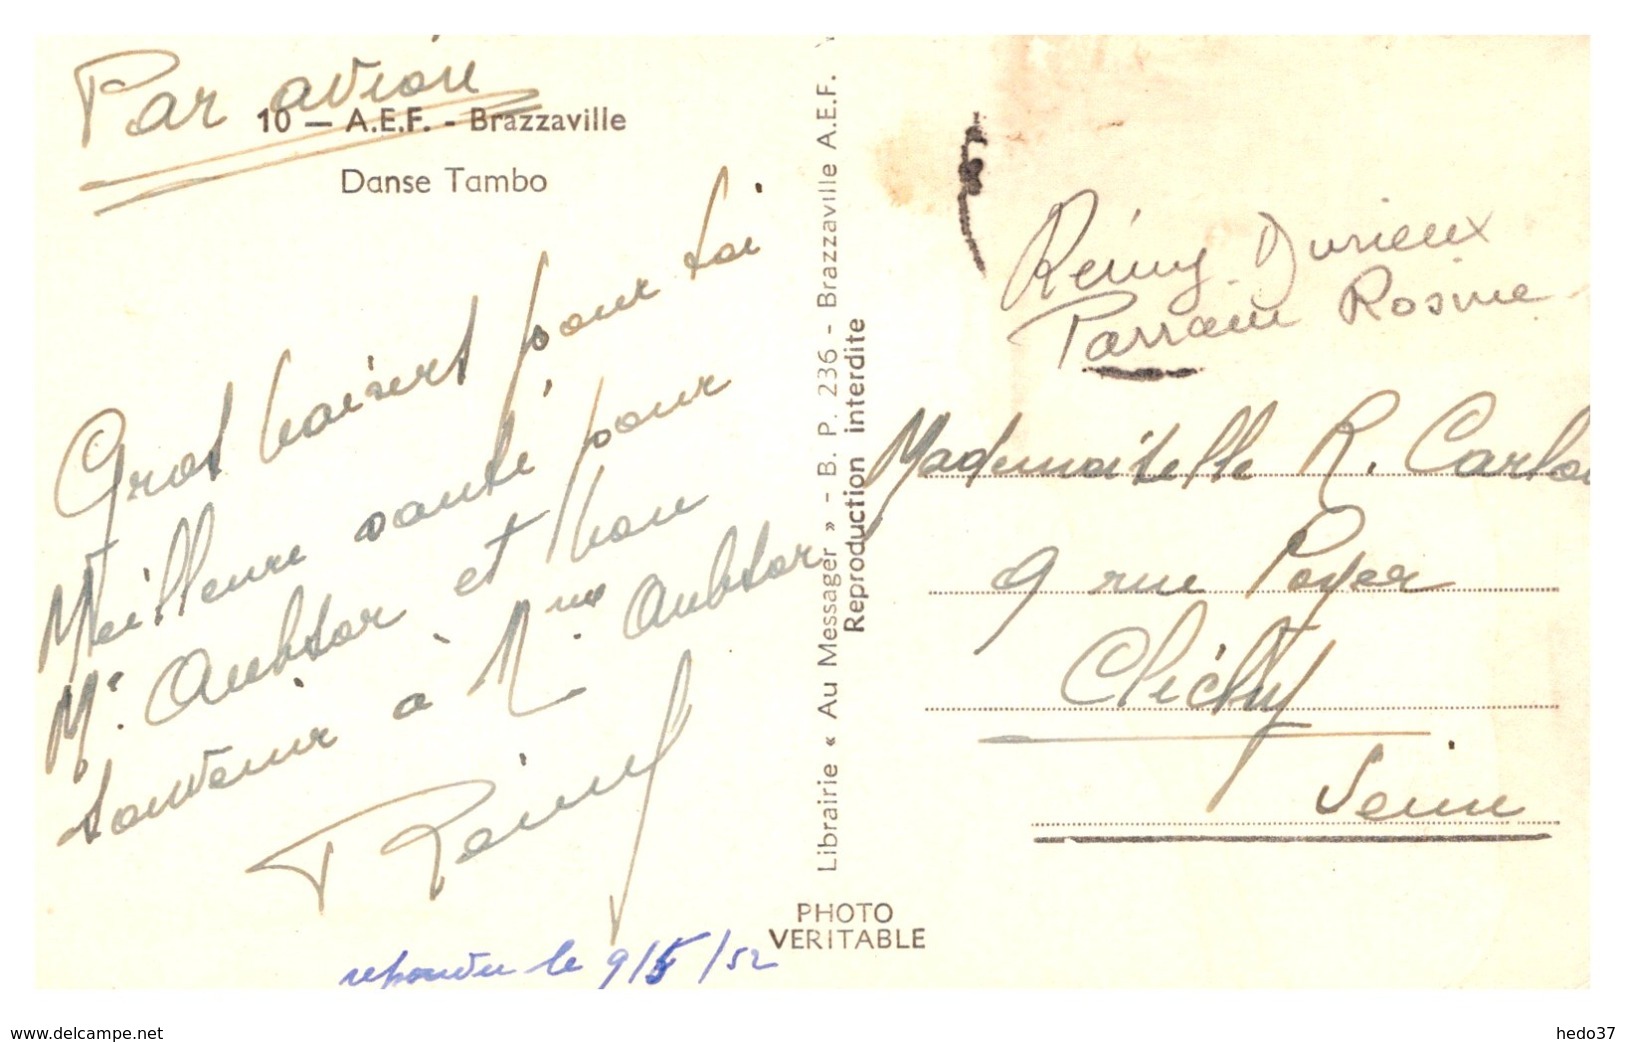 Par avion
10 — A.E.F. - Brazzaville
Danse Tambo
Gros baisers pour toi
Meilleure santé pour
Mr. Aubsar et bon
souvenir à Mme Aubsar
Rémy
repondu le 9/5/52
Librairie « Au Messager » - B. P. 236 - Brazzaville A.E.F.
Reproduction interdite
PHOTO
VERITABLE
Rémy Durieux
Parrain Rosine
Mademoiselle R. Carlo
9 rue Poyer
Clichy
Seine
www.delcampe.net
hedo37